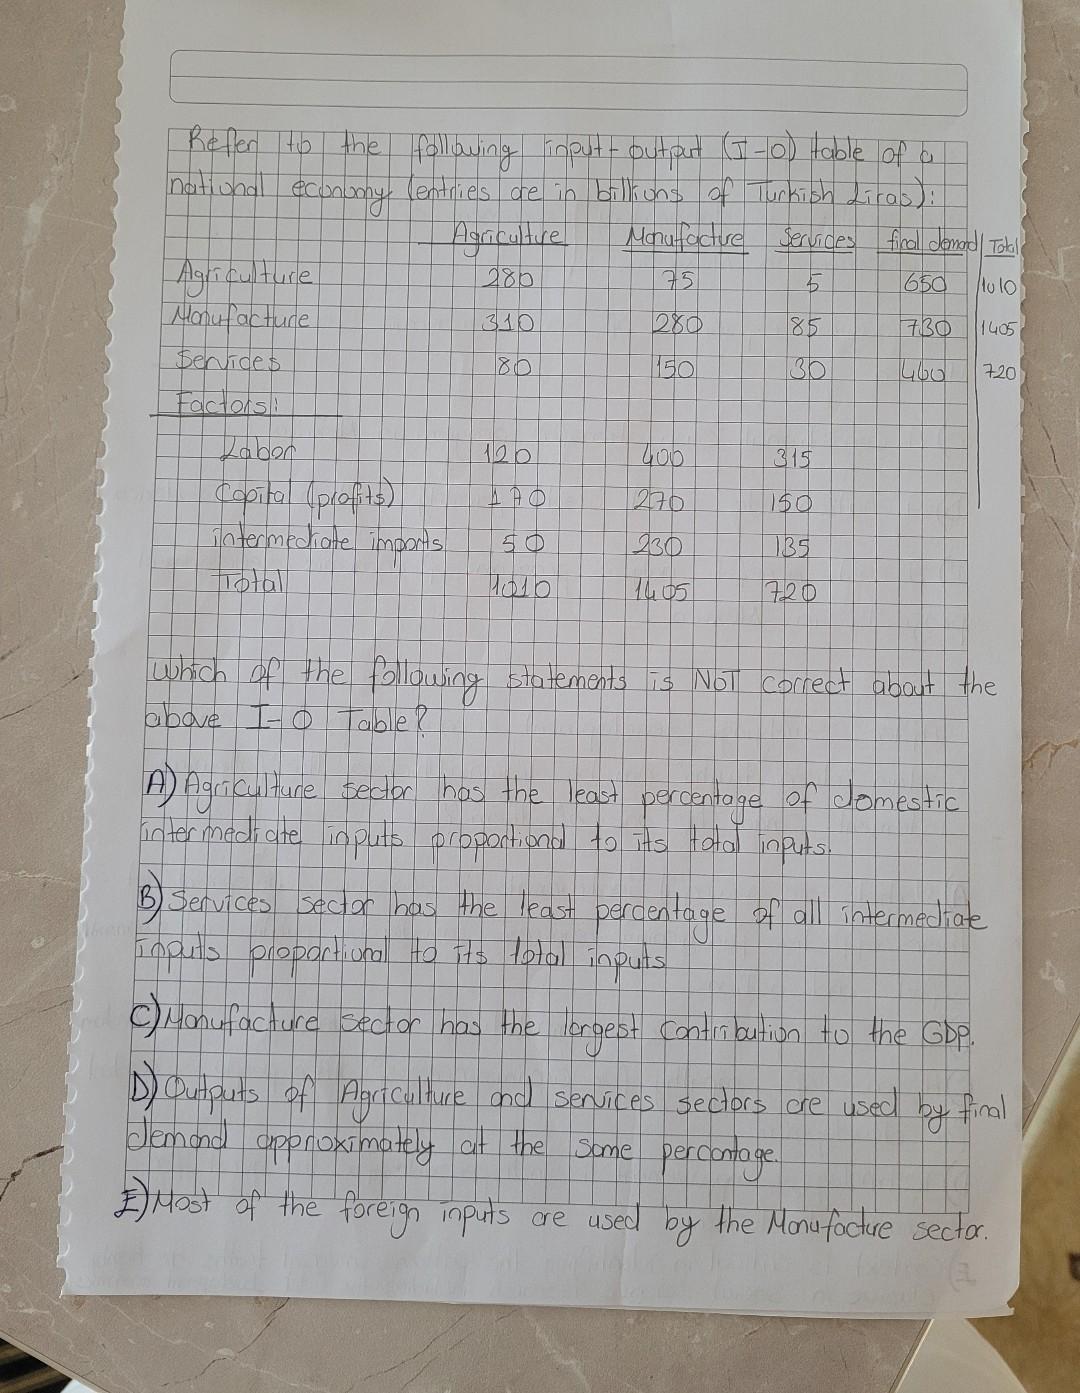 Refer to the following input-output (I-O) table of a
national economy (entries are in billions of Turkish Liras):
Agriculture Manufacture Services final demand Total
Agriculture 280 75 5 650 1010
Manufacture 310 280 85 730 1405
Services 80 150 30 460 720
Factors:
Labor 120 400 315
Capital (profits) 170 270 150
intermediate imports 50 230 135
Total 1010 1405 720
Which of the following statements is NOT correct about the
above I-O Table?
A) Agriculture sector has the least percentage of domestic
intermediate inputs proportional to its total inputs.
B) Services sector has the least percentage of all intermediate
inputs proportional to its total inputs
C) Manufacture sector has the largest contribution to the GDP.
D) Outputs of Agriculture and services sectors are used by final
demand approximately at the same percentage.
E) Most of the foreign inputs are used by the Manufacture sector.